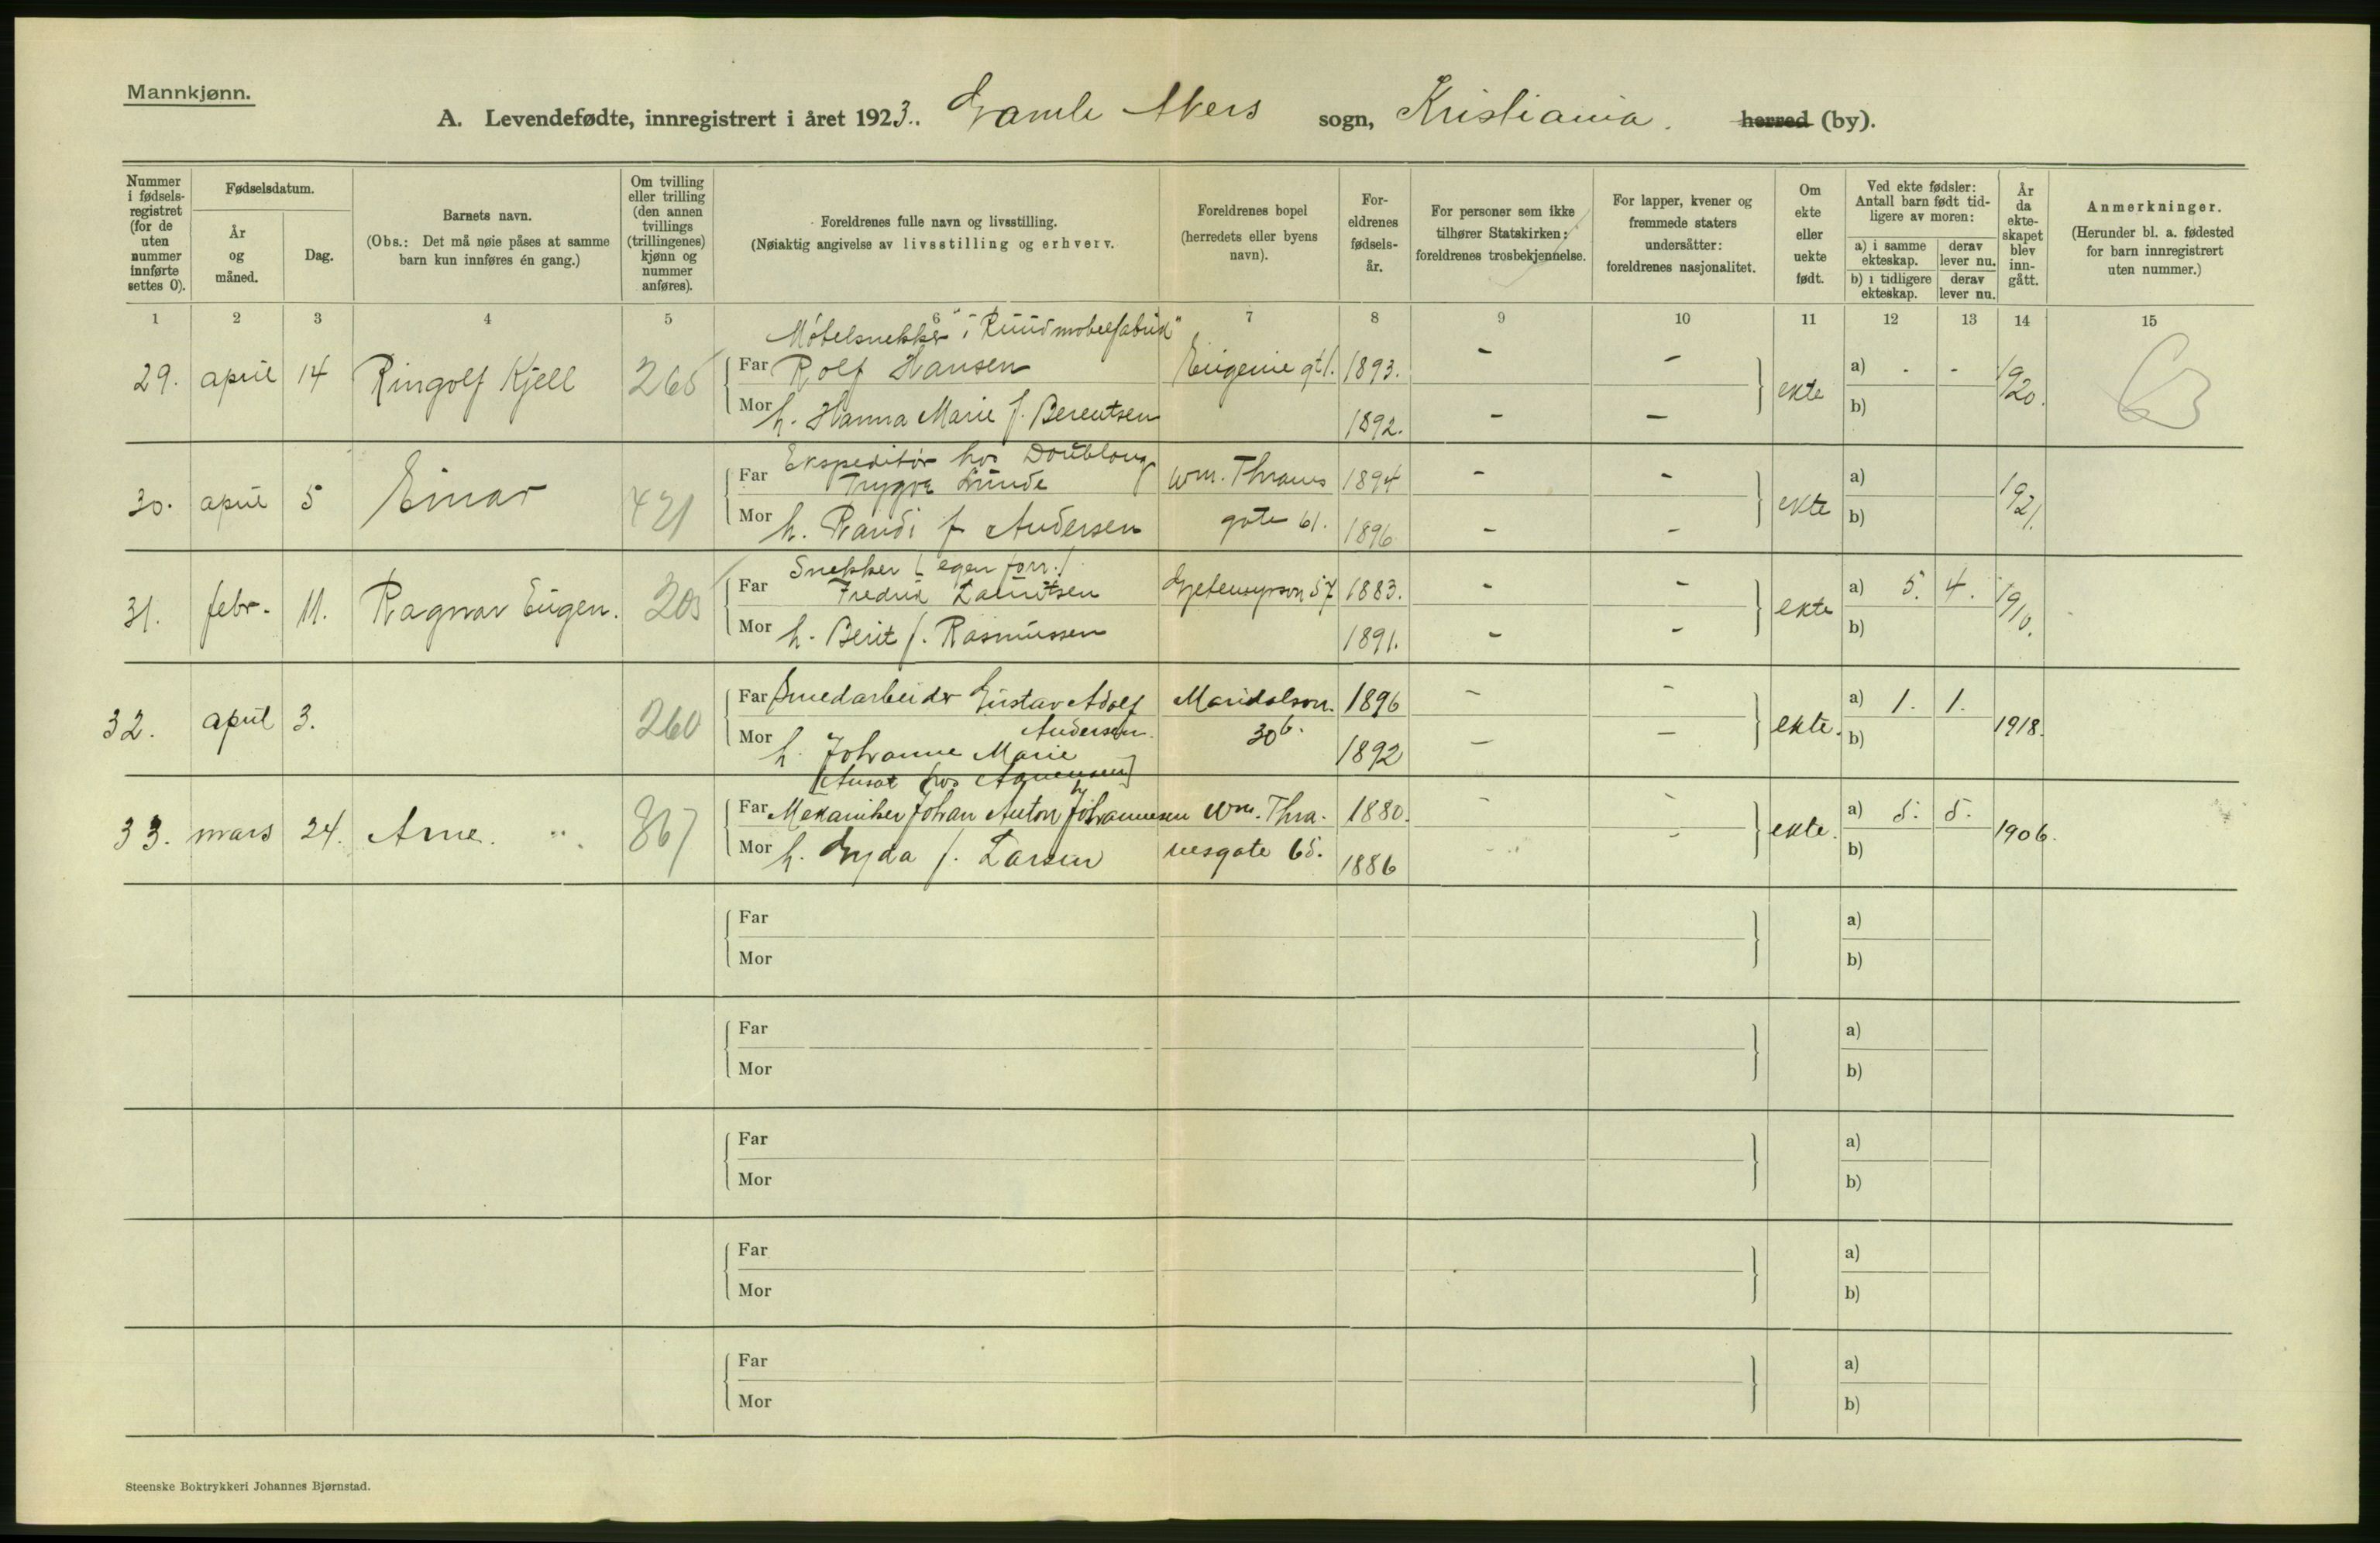 Mannkjønn.
A. Levendefødte, innregistrert i året 1923. Gamle Akers sogn, Kristiania. herred (by).
Nummer i fødselsregistret (for de uten nummer innførte settes 0).
Fødselsdatum.
År og måned.
Dag.
Barnets navn.
(Obs.: Det må nøie påses at samme barn kun innføres én gang.)
Om tvilling eller trilling (den annen tvillings (trillingenes) kjønn og nummer anføres).
Foreldrenes fulle navn og livsstilling.
(Nøiaktig angivelse av livsstilling og erhverv.
Foreldrenes bopel (herredets eller byens navn).
Foreldrenes fødselsår.
For personer som ikke tilhører Statskirken: foreldrenes trosbekjennelse.
For lapper, kvener og fremmede staters undersåtter: foreldrenes nasjonalitet.
Om ekte eller uekte født.
Ved ekte fødsler: Antall barn født tidligere av moren:
a) i samme ekteskap.
derav lever nu.
b) i tidligere ekteskap.
derav lever nu.
År da ekteskapet blev inngått.
Anmerkninger.
(Herunder bl. a. fødested for barn innregistrert uten nummer.)
1 2 3 4 5 6 7 8 9 10 11 12 13 14 15
Møbelsnekker i "Ruud møbelfabrik"
29. april 14 Ringolf Kjell 265 Far Rolf Hansen Eugenie gt 1. 1893. - - ekte a) - - 19/20.
Mor h. Hanna Marie f. Berentsen 1892. - - b)
Ekspeditør hos Doublong
30. april 5 Einar 421 Far Trygve Lunde Wm. Thranes 1894 - - ekte a) 19/21.
Mor h. Randi f Andersen gate 61. 1896 - - b)
Snekker (egen forr.)
31. febr. 11. Ragnar Eugen. 203 Far Fredrik Lauritsen Gjetemyrsvn 57 1883. - - ekte a) 5. 4. 19/10.
Mor h. Berit f. Rasmussen 1891. - - b)
32. april 3. 260 Far Smedarbeider Gustav Adolf Maridalsvn. 1896 - - ekte. a) 1. 1. 1918.
Andersen. 30 b.
Mor h. Johanne Marie 1892 - - b)
33. mars 24. Arne. 367 Far Mekaniker Johan Anton Johannesen Wm. Thra- 1880. - - ekte. a) 5. 5. 1906.
Mor h. Gyda f. Larsen nesgate 65. 1886 - - b)
Far a)
Mor b)
Far a)
Mor b)
Far a)
Mor b)
Far a)
Mor b)
Far a)
Mor b)
Steenske Boktrykkeri Johannes Bjørnstad.